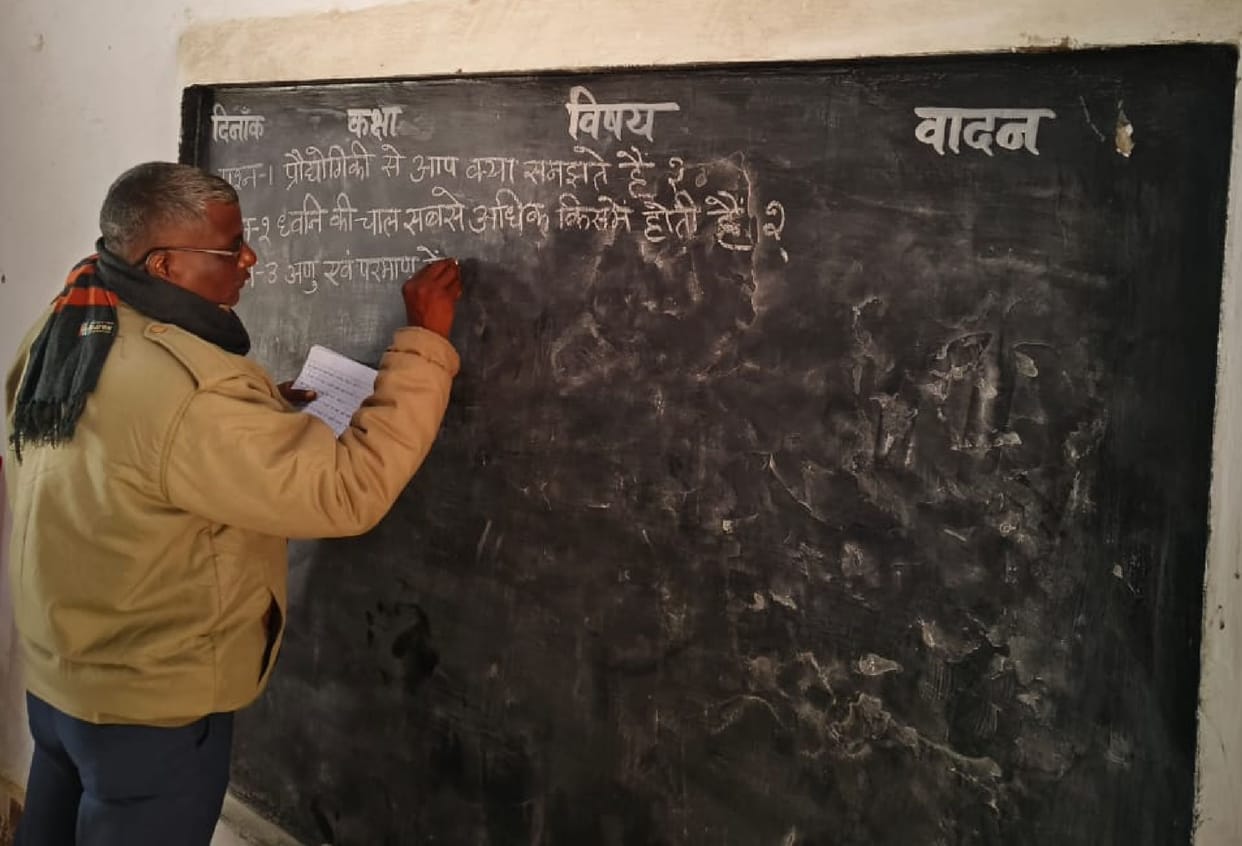 दिनाँक कक्षा विषय वादन
प्रश्न-1 प्रौद्योगिकी से आप क्या समझते है ?
-2 ध्वनि की चाल सबसे अधिक किसमें होती हैं ?
-3 अणु एवं परमाणु में